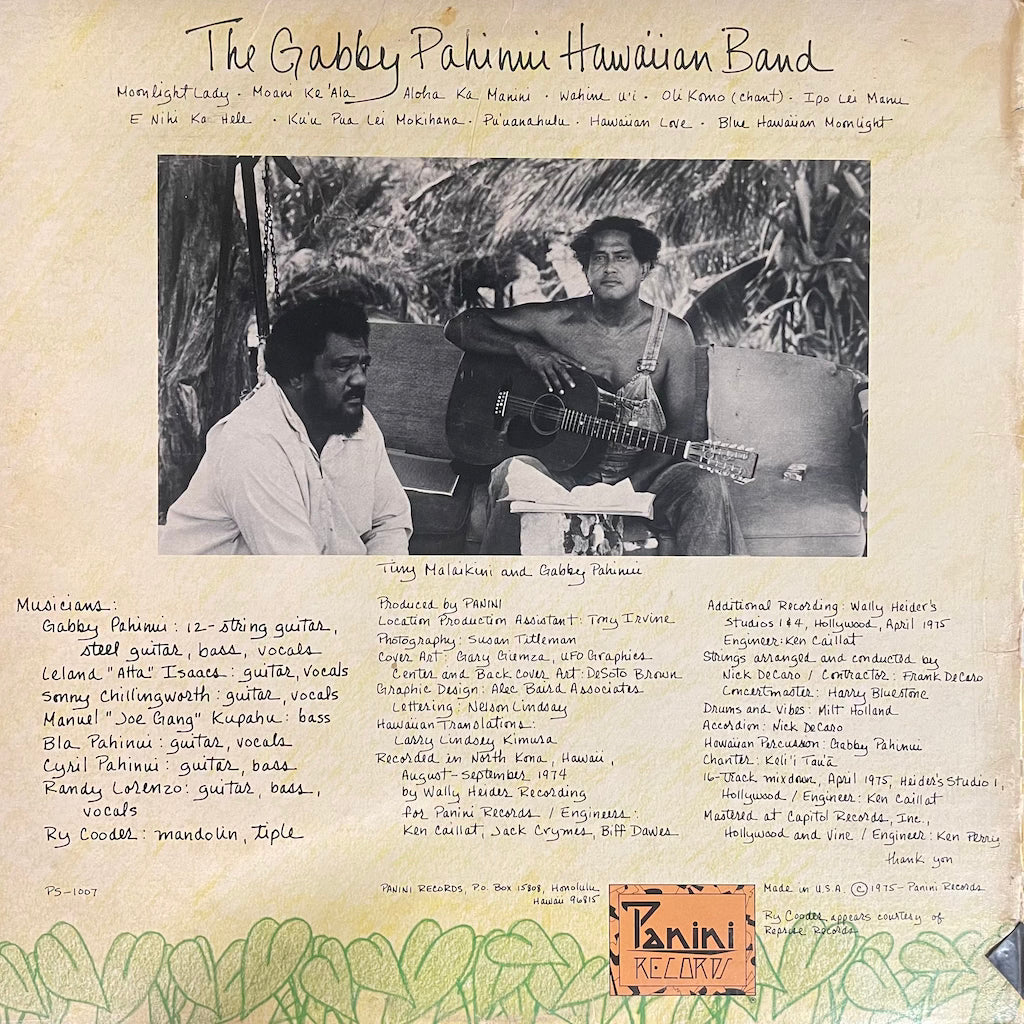 The Gabby Pahinui Hawaiian Band
Moonlight Lady · Moani Ke 'Ala · Aloha Ka Manini · Wahine U'i · Oli Komo (chant) · Ipo Lei Manu
E Nihi Ka Hele · Ku'u Pua Lei Mokihana · Pu'uanahulu · Hawaiian Love · Blue Hawaiian Moonlight
Tiny Malaikini and Gabby Pahinui
Musicians:
Gabby Pahinui: 12-string guitar,
steel guitar, bass, vocals
Leland "Atta" Isaacs: guitar, vocals
Sonny Chillingworth: guitar, vocals
Manuel "Joe Gang" Kupahu: bass
Bla Pahinui: guitar, vocals
Cyril Pahinui: guitar, bass
Randy Lorenzo: guitar, bass,
vocals
Ry Cooder: mandolin, tiple
Produced by PANINI
Location Production Assistant: Tony Irvine
Photography: Susan Titleman
Cover Art: Gary Giemza, UFO Graphics
Center and Back Cover Art: DeSoto Brown
Graphic Design: Alec Baird Associates
Lettering: Nelson Lindsay
Hawaiian Translations:
Larry Lindsey Kimura
Recorded in North Kona, Hawaii,
August-September 1974
by Wally Heider Recording
for Panini Records / Engineers:
Ken Caillat, Jack Crymes, Biff Dawes
Additional Recording: Wally Heider's
Studios 1&4, Hollywood, April 1975
Engineer: Ken Caillat
Strings arranged and conducted by
Nick DeCaro / Contractor: Frank DeCaro
Concertmaster: Harry Bluestone
Drums and Vibes: Milt Holland
Accordion: Nick DeCaro
Hawaiian Percussion: Gabby Pahinui
Chanter: Keli'i Tau'ā
16-Track mixdown, April 1975, Heider's Studio 1,
Hollywood / Engineer: Ken Caillat
Mastered at Capitol Records, Inc.,
Hollywood and Vine / Engineer: Ken Perry
thank you
PS-1007
PANINI RECORDS, P.O. Box 15808, Honolulu
Hawaii 96815
Panini
RECORDS
Made in U.S.A. © 1975 - Panini Records
Ry Cooder appears courtesy of
Reprise Records